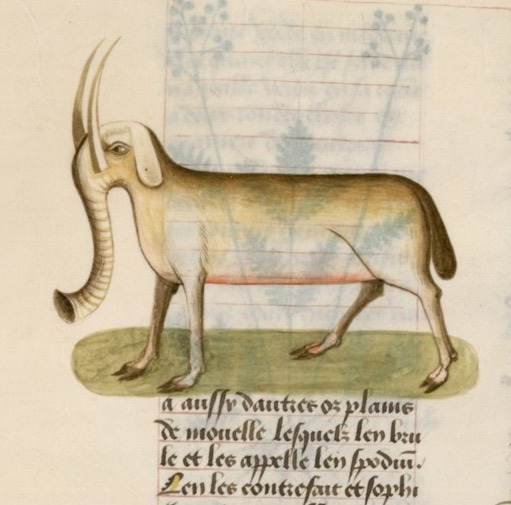 a aussy dautres oz plains
de mouelle lesquelz len bru
le et les appelle len spodiū.
Len les contrefait et sophi